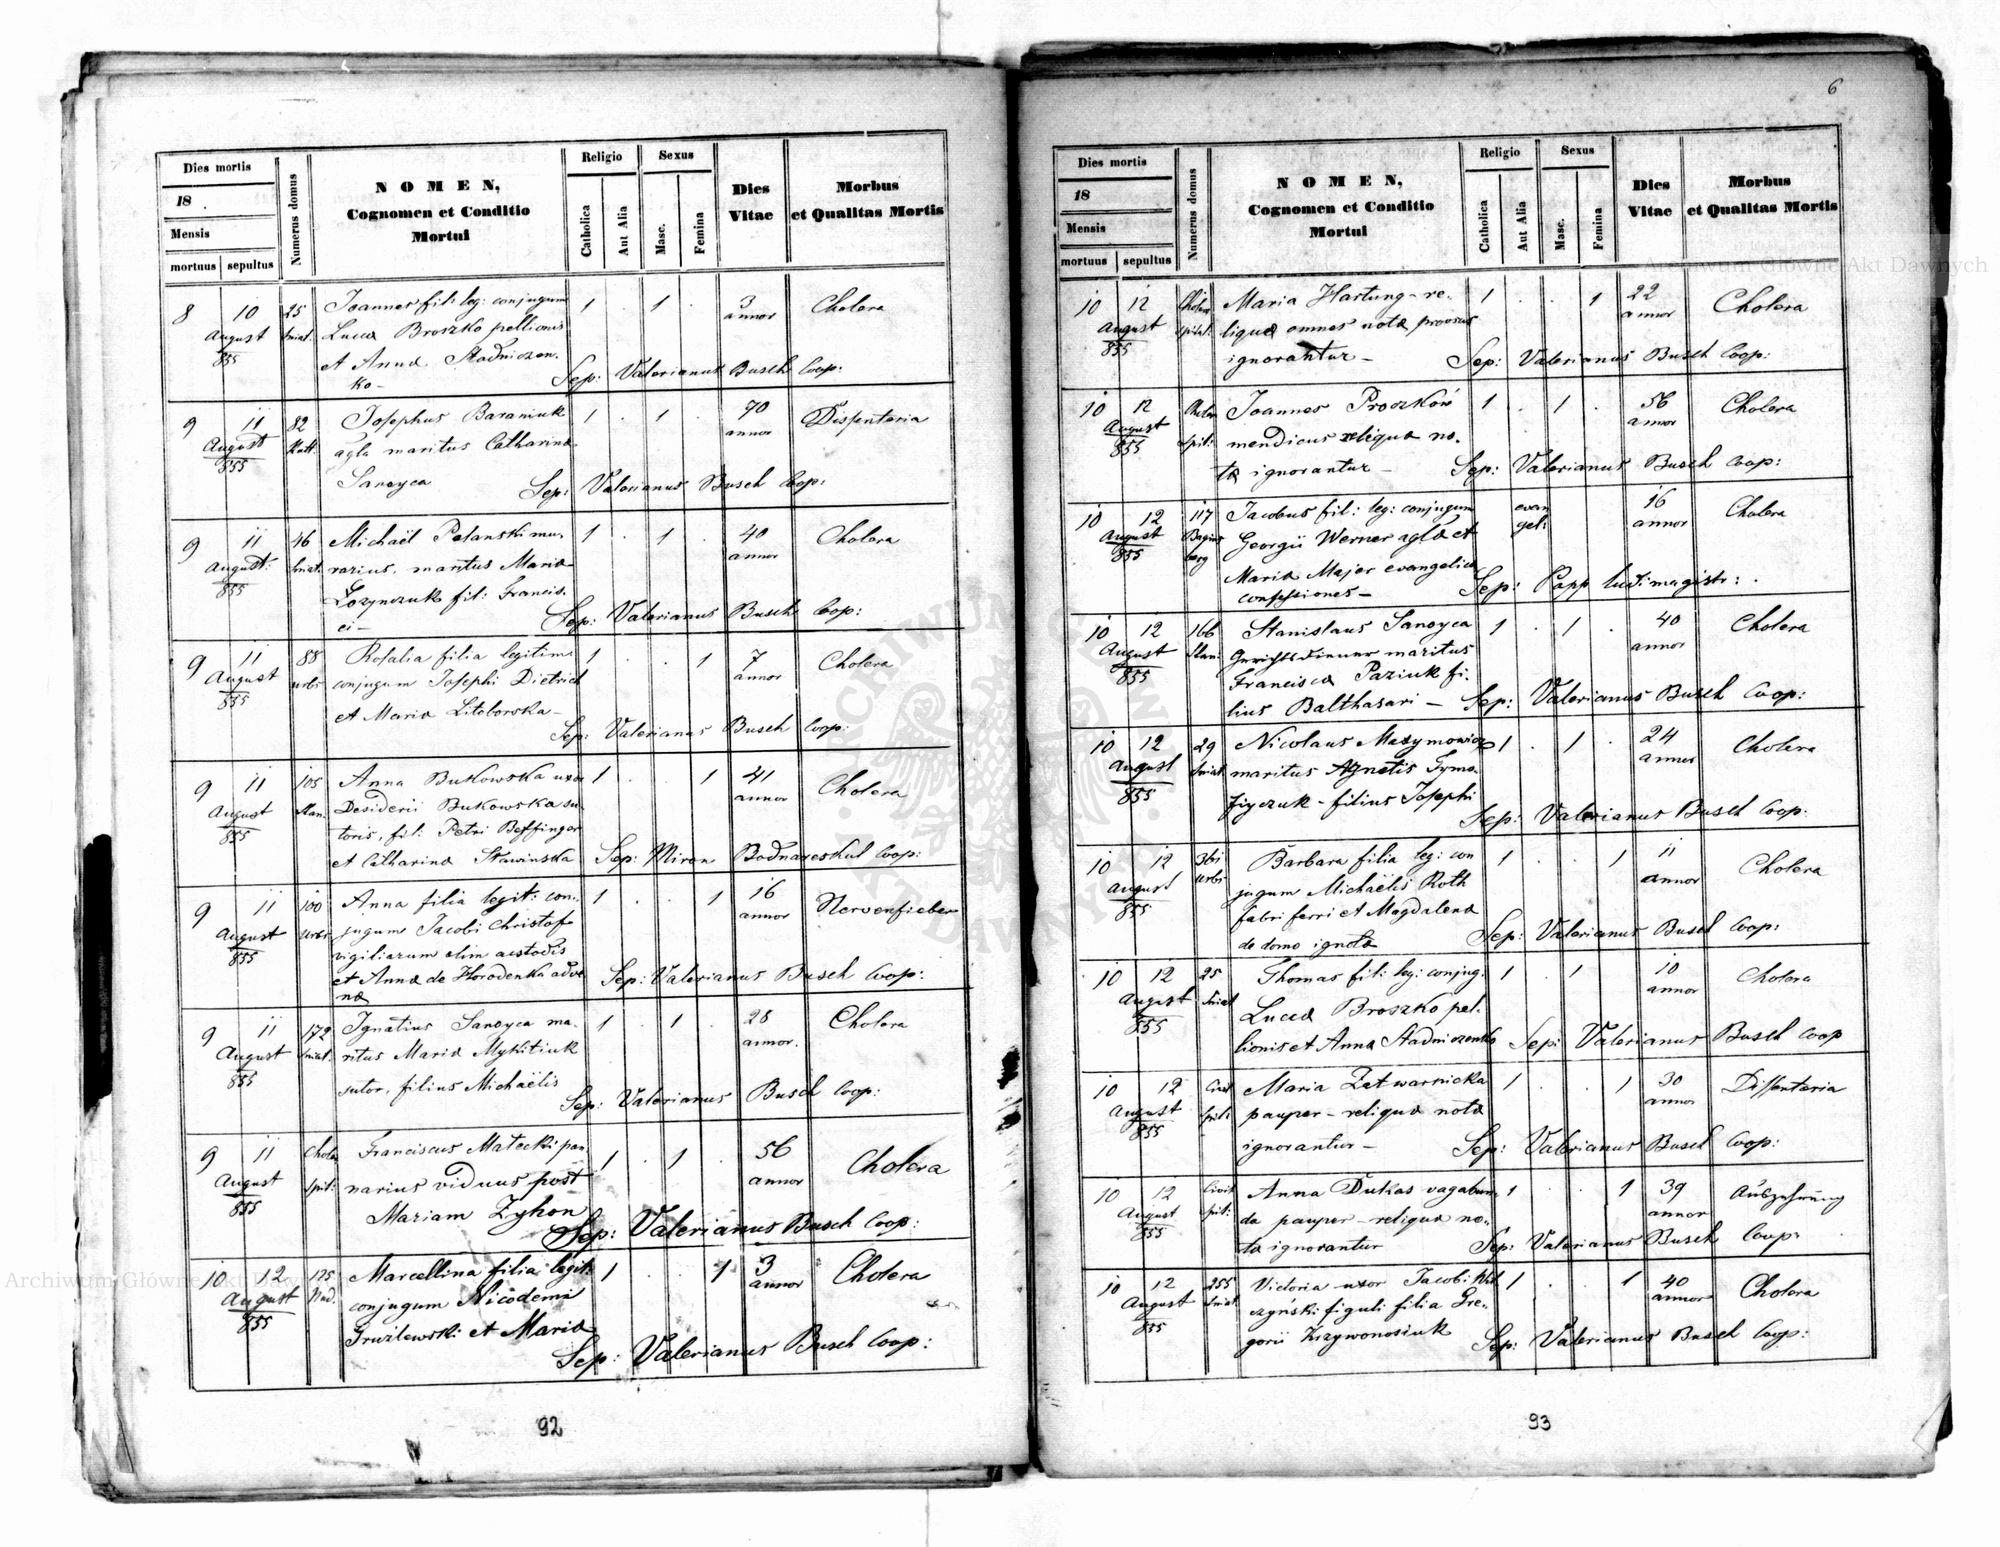 Dies mortis
18
Mensis
mortuus sepultus
Numerus domus
NOMEN,
Cognomen et Conditio
Mortui
Religio
Catholica
Aut Alia
Sexus
Masc.
Femina
Dies
Vitae
Morbus
et Qualitas Mortis
8 10 25 Joannes fil: leg: conjugum 1 . 1 . 3 Cholera
August Sniat: Lucæ Broszko pellionis annor
855 et Anna Stadniczen.
ko - Sep: Valerianus Busch Coop:
9 11 82 Josephus Baraniuk 1 . 1 . 70 Dissenteria
August agla maritus Catharina annor
855 Sanoyca Sep: Valerianus Busch Coop:
9 11 46 Michaël Petanski mu, 1 . 1 . 40 Cholera
August: Sniat. rarius, maritus Maria annor
855 Lozynczuk fil: Francis.
ci - Sep: Valerianus Busch Coop:
9 11 88 Rosalia filia legitim: 1 . . 1 7 Cholera
August urbs conjugum Josephi Dietrich annor
855 et Maria Litoborska -
Sep: Valerianus Busch Coop:
9 11 105 Anna Bukowska uxor 1 . . 1 41 Cholera
August Stan: Desiderii Bukowska su- annor
855 toris, fil: Petri Beffinger
et Catharina Stawinska Sep: Miron Bodnareskul Coop:
9 11 100 Anna filia legit: con, 1 . . 1 16 Nervenfieber
August urbs jugum Jacobi Christof annor
855 vigiliarum olim custodis
et Anna de Horodenka adve Sep: Valerianus Busch Coop:
na
9 11 172 Ignatius Sanoyca ma. 1 . 1 . 28 Cholera
August Sniat. ritus Maria Mykitiuk annor.
855 sutor, filius Michaëlis
Sep: Valerianus Busch Coop:
9 11 Choler Franciscus Matecki pan 1 . 1 . 56 Cholera
August spit: narius viduus post annor
855 Mariam Zyhon
Sep: Valerianus Busch Coop:
10 12 125 Marcellina filia legit: 1 . . 1 3 Cholera
August conjugum Nicodemi annor
855 Gruzlewski et Maria
Sep: Valerianus Busch Coop:
92
6
Dies mortis
18
Mensis
mortuus sepultus
Numerus domus
NOMEN,
Cognomen et Conditio
Mortui
Religio
Catholica
Aut Alia
Sexus
Masc.
Femina
Dies
Vitae
Morbus
et Qualitas Mortis
10 12 Choler Maria Hartung - re. 1 . . 1 22 Cholera
August spital: liqua omnes nota prorsus annor
855 ignorantur - Sep: Valerianus Busch Coop:
10 12 Choler Joannes Proszków 1 . 1 . 56 Cholera
August spit: mendicus reliqua no. annor
855 ta ignorantur - Sep: Valerianus Busch Coop:
10 12 117 Jacobus fil: leg: conjugum evan 16 Cholera
August Georgii Werner agla et gel: annor
855 Maria Majer evangelica
confessiones - Sep: Papp ludimagistr:
10 12 166 Stanislaus Sanoyca 1 . 1 . 40 Cholera
August Stan: Gerichtsdiener maritus annor
855 Francisca Paziuk fi-
lius Balthasari - Sep: Valerianus Busch Coop:
10 12 29 Nicolaus Maxymowicz 1 . 1 . 24 Cholera
August Sniat. maritus Agnetis Tymo. annor
855 fijczuk - filius Josephi
Sep: Valerianus Busch Coop:
10 12 361 Barbara filia leg: con 1 . . 1 11 Cholera
August urbs jugum Michaëlis Roth annor
855 fabri ferri et Magdalena
de domo ignota Sep: Valerianus Busch Coop:
10 12 25 Thomas fil: leg: conjug: 1 . 1 10 Cholera
August Sniat Lucæ Broszko pel. annor
855 lionis et Anna Stadniczenko Sep: Valerianus Busch Coop
10 12 Civil Maria Zatwarnicka 1 . . 1 30 Dissenteria
August spit: pauper - reliqua nota annor
855 ignorantur - Sep: Valerianus Busch Coop:
10 12 Civil Anna Dukas vagabun, 1 . . 1 39 Auszehrung
August spit: da pauper - reliqua no. annor
855 ta ignorantur Sep: Valerianus Busch Coop:
10 12 255 Victoria uxor Jacobi 1 . . 1 40 Cholera
August Sniat. czyński figuli filia Gre. annor
855 gorii Krzywonosiuk Sep: Valerianus Busch Coop:
93
Archiwum Główne Akt Dawnych
Archiwum Główne Akt Dawnych
ARCHIWUM GŁÓWNE AKT DAWNYCH